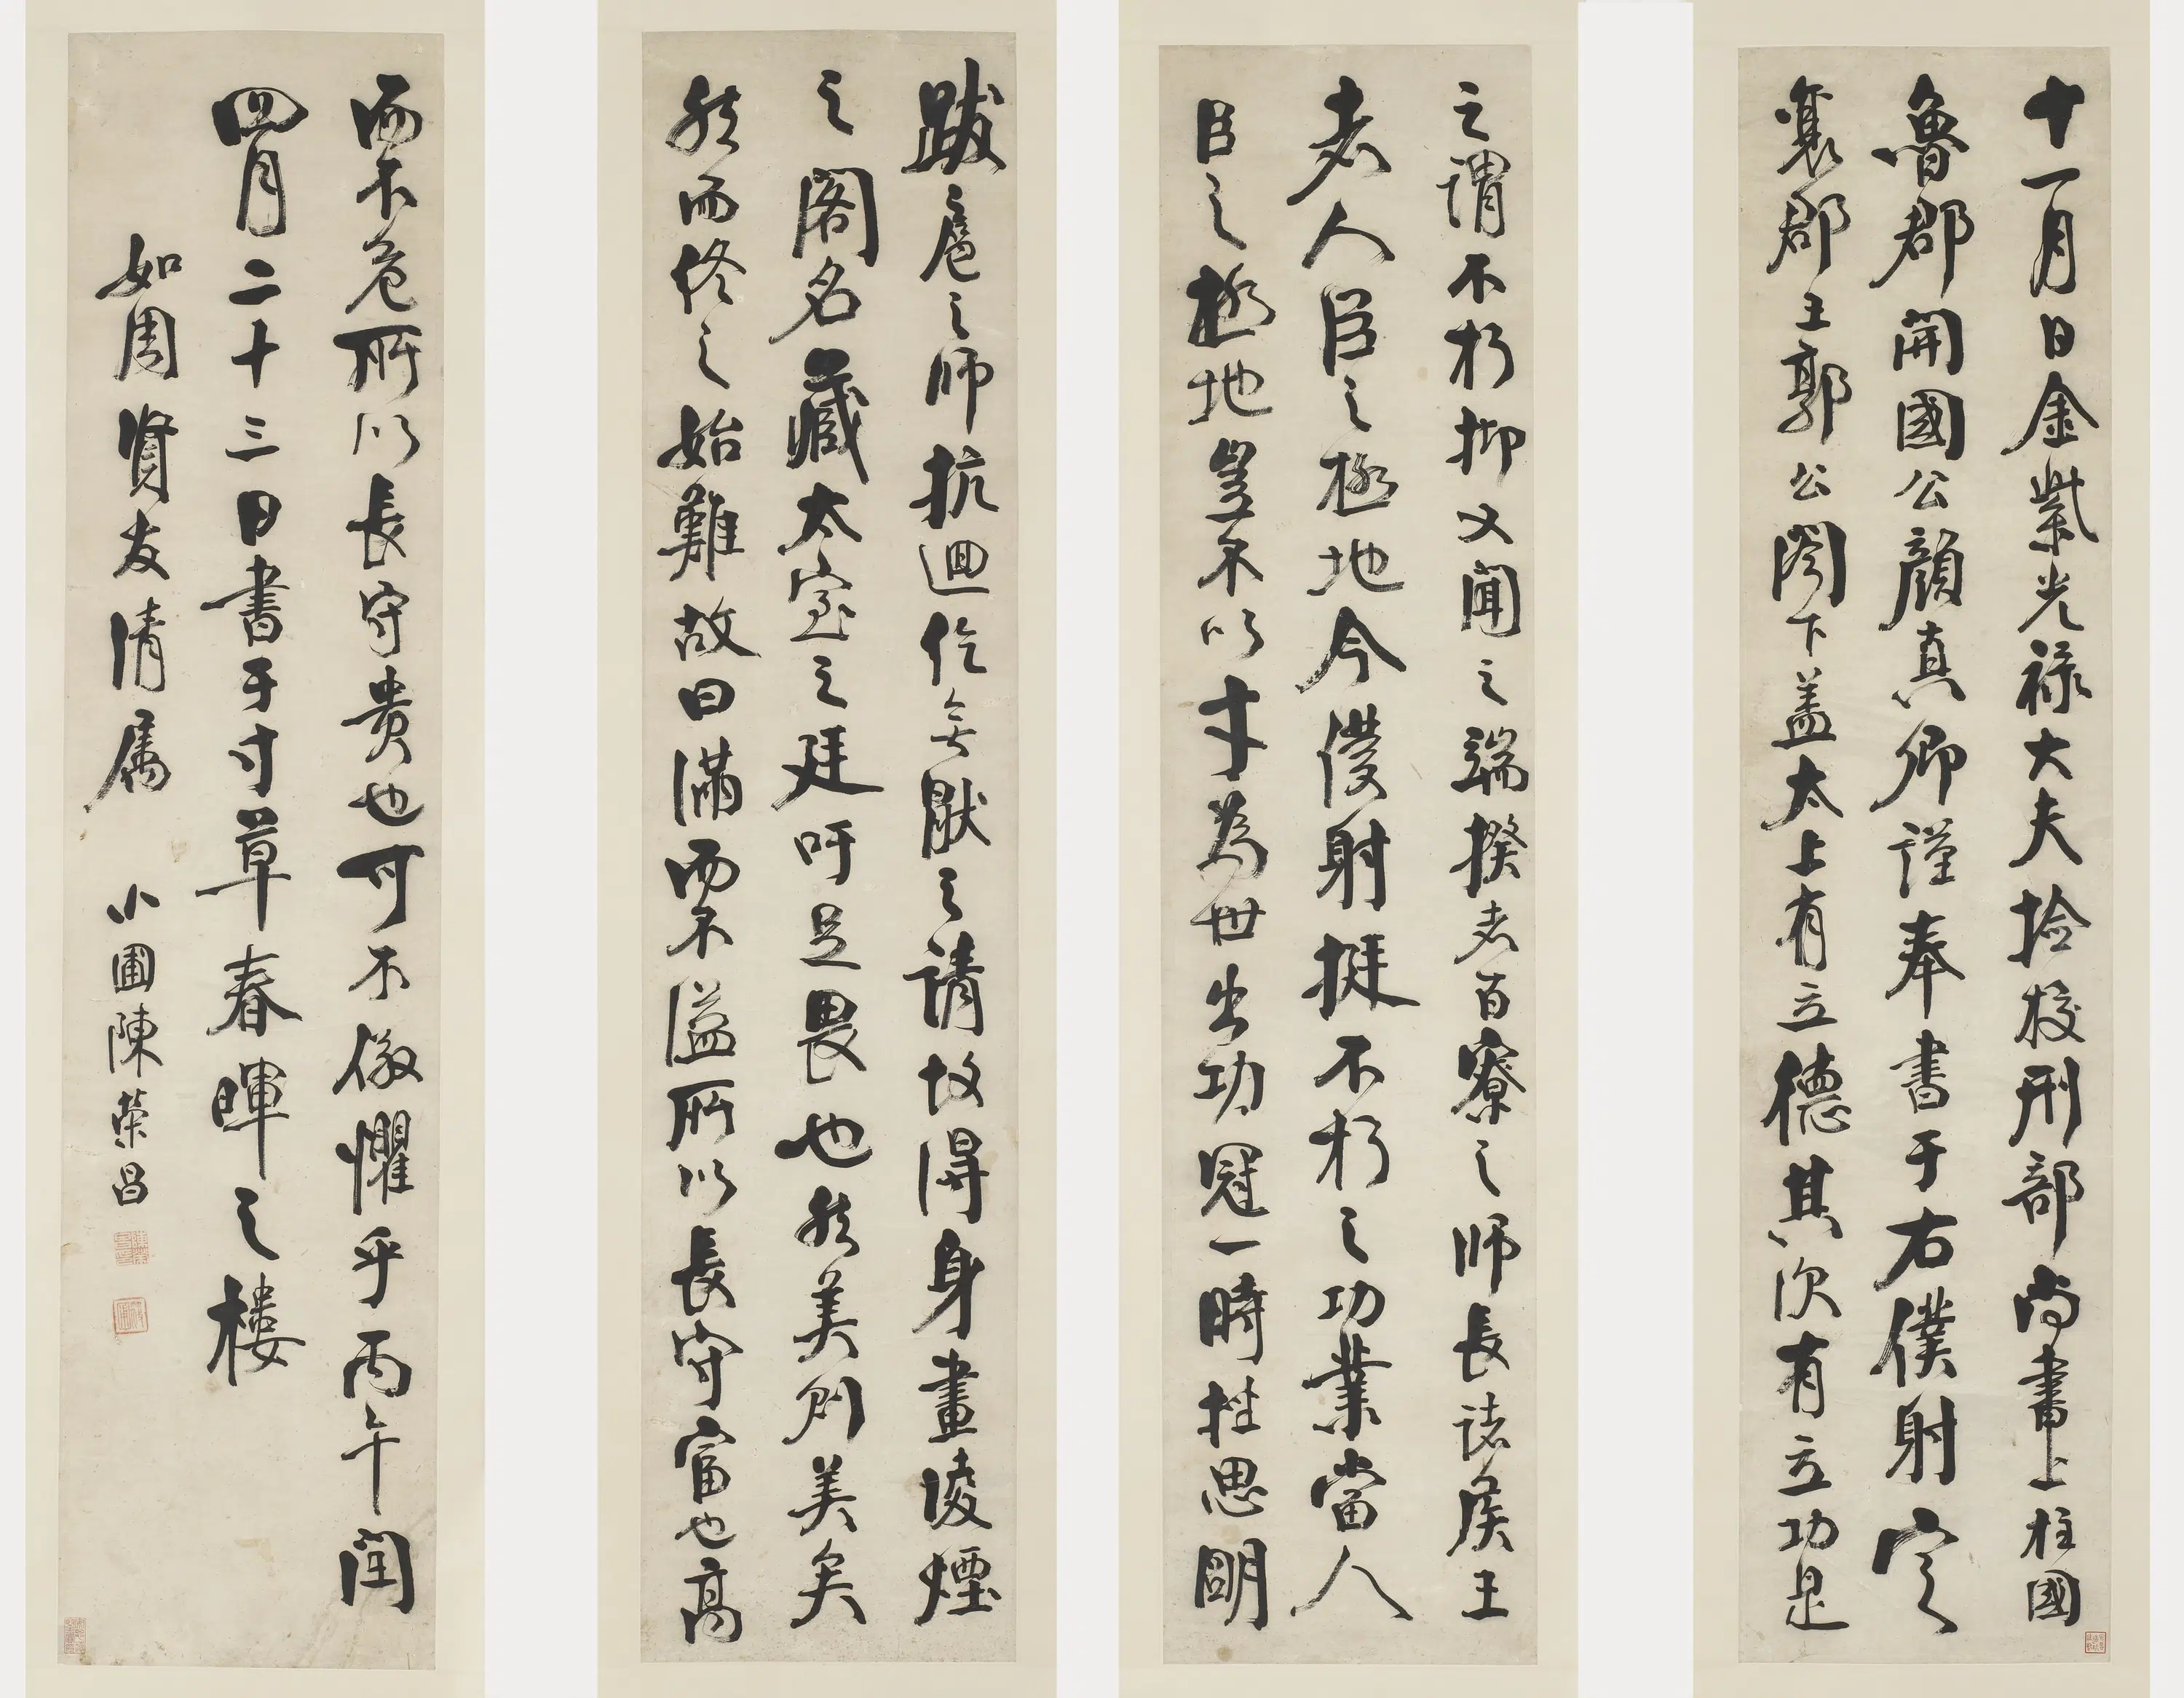 十一月日金紫光禄大夫撿校刑部尚書上柱國
魯郡開國公顔真卿謹奉書于右僕射定
襄郡王郭公閣下盖太上有立德其次有立功是
之謂不朽抑又聞之端揆者百寮之師長諸侯王
者人臣之極地今僕射挺不朽之功業當人
臣之極地豈不以才為世出功冠一時挫思明
跋扈之師抗迴紇無猒之請故得身畫凌煙
之閣名藏太室之廷吁足畏也然美則美矣
然而終之始難故曰滿而不溢所以長守富也高
而不危所以長守貴也可不儆懼乎丙午閏
四月二十三日書于寸草春暉之樓
如周賢友清属
小圃陳榮昌